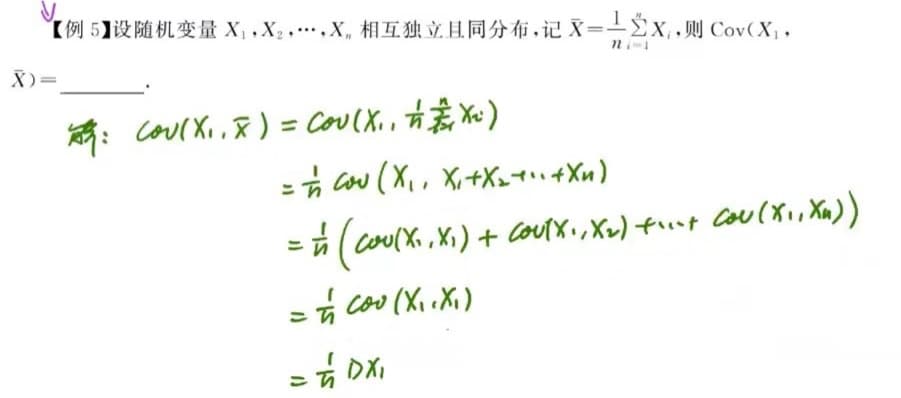 【例 5】设随机变量 X₁,X₂,⋯,Xₙ 相互独立且同分布,记 X̄=1/n ∑ᵢ₌₁ⁿ Xᵢ,则 Cov(X₁,
X̄)=______.
解: Cov(X₁, X̄) = Cov(X₁, 1/n ∑ᵢ₌₁ⁿ Xᵢ)
= 1/n Cov(X₁, X₁+X₂+⋯+Xₙ)
= 1/n (Cov(X₁,X₁) + Cov(X₁,X₂) +⋯+ Cov(X₁,Xₙ))
= 1/n Cov(X₁,X₁)
= 1/n DX₁